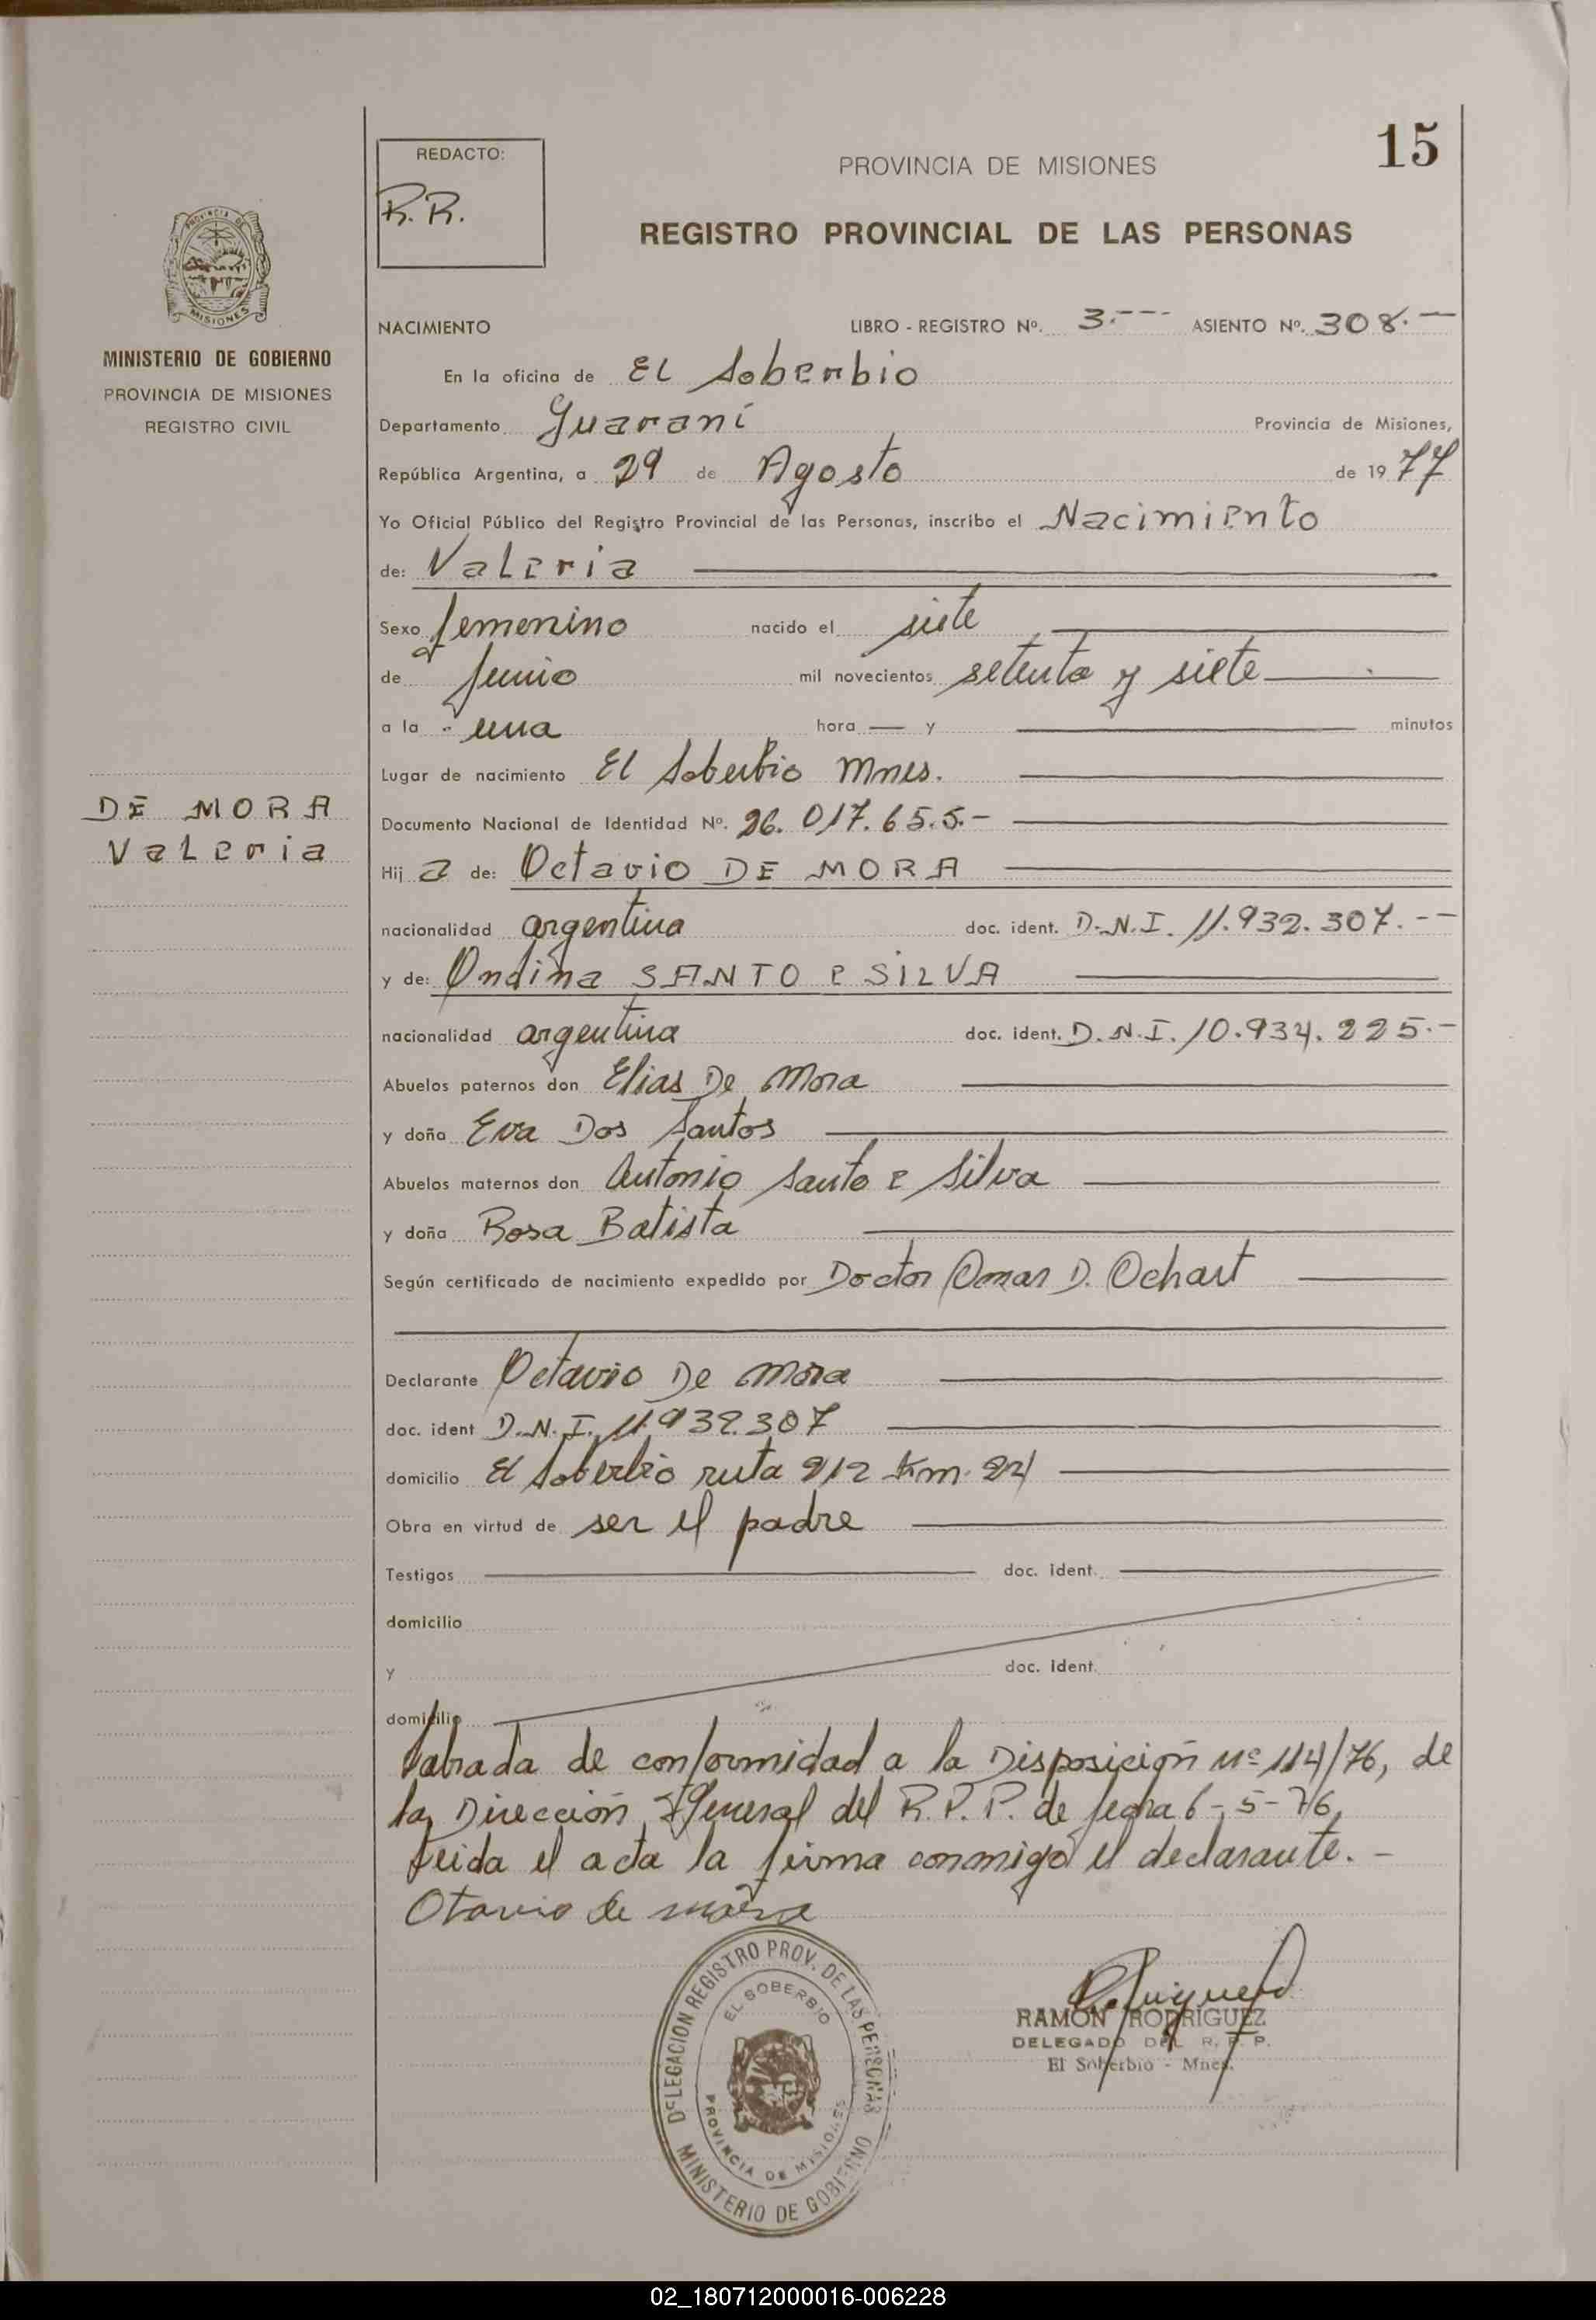 15
REDACTO:
R.R.
PROVINCIA DE MISIONES
REGISTRO PROVINCIAL DE LAS PERSONAS
PROVINCIA DE
MISIONES
MINISTERIO DE GOBIERNO
PROVINCIA DE MISIONES
REGISTRO CIVIL
NACIMIENTO LIBRO - REGISTRO Nº. 3.--- ASIENTO Nº. 308.—
En la oficina de El Soberbio
Departamento Guaraní Provincia de Misiones,
República Argentina, a 29 de Agosto de 1977
Yo Oficial Público del Registro Provincial de las Personas, inscribo el Nacimiento
de: Valeria
Sexo femenino nacido el siete
de Junio mil novecientos setenta y siete
a la una hora — y minutos
Lugar de nacimiento El Soberbio Mnes.
DE MORA
Valeria
Documento Nacional de Identidad Nº. 26.017.655.-
Hij a de: Octavio DE MORA
nacionalidad argentina doc. ident. D.N.I. 11.932.307.--
y de: Ondina SANTO E SILVA
nacionalidad argentina doc. ident. D.N.I. 10.934.225.-
Abuelos paternos don Elias De Mora
y doña Eva Dos Santos
Abuelos maternos don Antonio Santo E Silva
y doña Rosa Batista
Según certificado de nacimiento expedido por Doctor Omar D. Ochart
Declarante Octavio De Mora
doc. ident D.N.I. 11.932.307
domicilio El Soberbio ruta 212 Km. 22
Obra en virtud de ser el padre
Testigos doc. ident.
domicilio
y doc. ident.
domicilio
labrada de conformidad a la Disposición Nº 114/76, de
la Dirección General del R.P.P. de fecha 6-5-76,
Leida el acta la firma conmigo el declarante.-
Otavio de mora
DELEGACION REGISTRO PROV. DE LAS PERSONAS
EL SOBERBIO
PROVINCIA DE MISIONES
MINISTERIO DE GOBIERNO
RAMÓN RODRÍGUEZ
DELEGADO DEL R. P. P.
El Soberbio - Mnes.
02_180712000016-006228